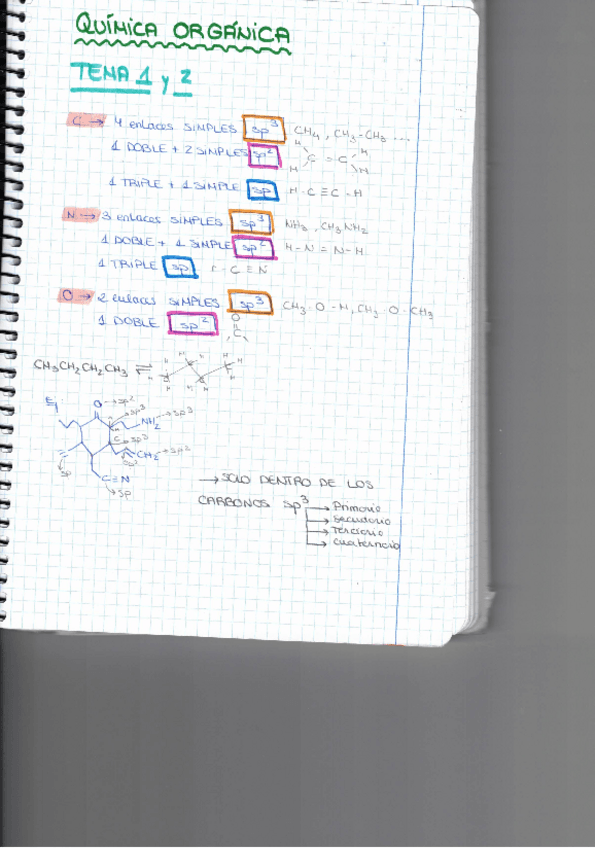 QUÍMICA ORGÁNICA
TEMA 1 y 2
C → 4 enlaces SIMPLES sp³ CH₄, CH₃-CH₃ ...
1 DOBLE + 2 SIMPLES sp² H H C = C H H
1 TRIPLE + 1 SIMPLE sp H-C≡C-H
N → 3 enlaces SIMPLES sp³ NH₃, CH₃NH₂
1 DOBLE + 1 SIMPLE sp² H-N=N-H
1 TRIPLE sp C≡N
O → 2 enlaces SIMPLES sp³ CH₃-O-H, CH₃-O-CH₃
1 DOBLE sp² O = C
CH₃CH₂CH₂CH₃
O → sp²
→ sp³
NH₂ → sp³
C → sp³
CH₂ → sp²
sp²
sp
C≡N
→ sp
→ SOLO DENTRO DE LOS
CARBONOS sp³ → Primario
→ Secundario
→ Terciario
→ Cuaternario